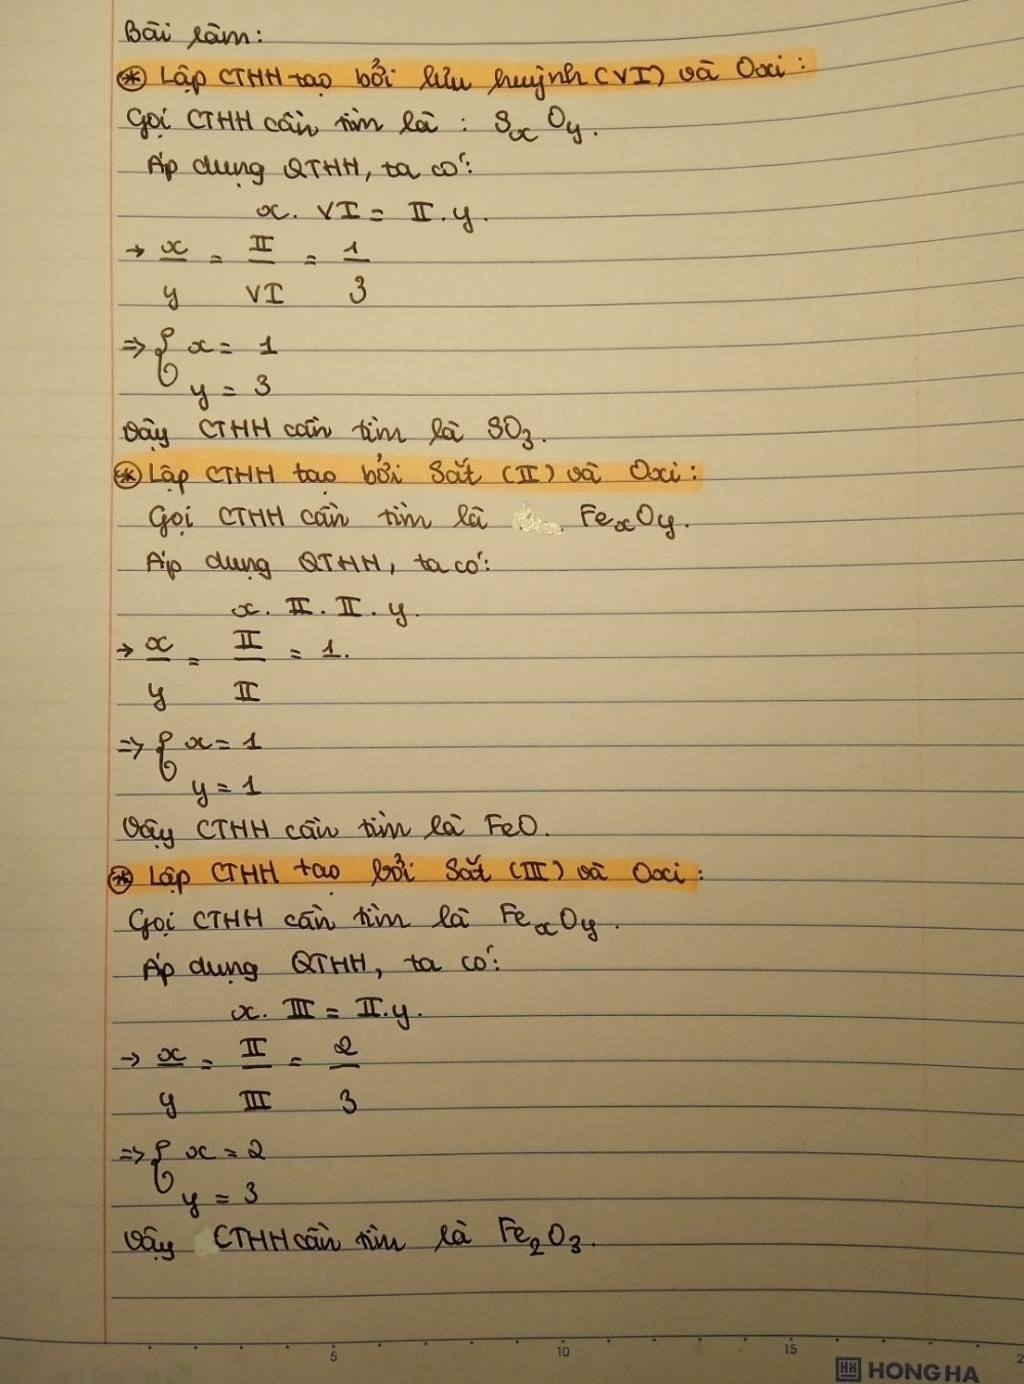 Bài làm:
⊛ Lập CTHH tạo bởi lưu huỳnh (VI) và Oxi:
Gọi CTHH cần tìm là : SxOy.
Áp dụng QTHH, ta có:
x. VI = II.y.
→ x/y = II/VI = 1/3
⇒ { x = 1
y = 3
Vậy CTHH cần tìm là SO3.
⊛ Lập CTHH tạo bởi Sắt (II) và Oxi:
Gọi CTHH cần tìm là FexOy.
Áp dụng QTHH, ta có:
x. II. II. y.
→ x/y = II/II = 1.
⇒ { x = 1
y = 1
Vậy CTHH cần tìm là FeO.
⊛ Lập CTHH tạo bởi Sắt (III) và Oxi:
Gọi CTHH cần tìm là FexOy.
Áp dụng QTHH, ta có:
x. III = II.y.
→ x/y = II/III = 2/3
⇒ { x = 2
y = 3
Vậy CTHH cần tìm là Fe2O3.
5 10 15 2
HH HONG HA